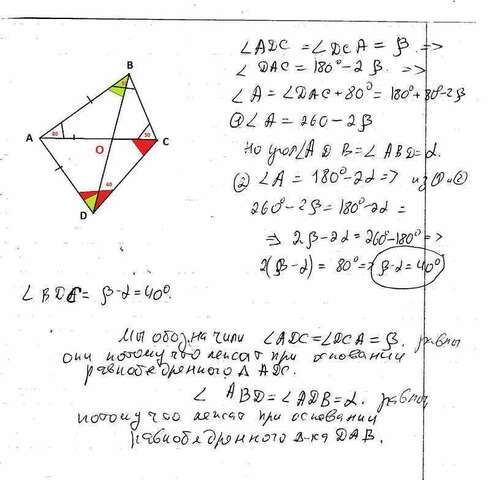 B
A
C
D
O
80
50
40
∠ADC = ∠DCA = β. =>
∠DAC = 180° - 2β. =>
∠A = ∠DAC + 80° = 180° + 80 - 2β
① ∠A = 260 - 2β
Но угол ∠ADB = ∠ABD = α.
② ∠A = 180° - 2α => из ① и ②
260° - 2β = 180° - 2α =
=> 2β - 2α = 260° - 180° =>
2(β - α) = 80° => β - α = 40°
∠BDC = β - α = 40°.
Мы обозначили ∠ADC = ∠DCA = β. равны
они потому что лежат при основании
равнобедренного Δ ADC.
∠ABD = ∠ADB = α. равны
потому что лежат при основании
равнобедренного Δ-ка DAB.